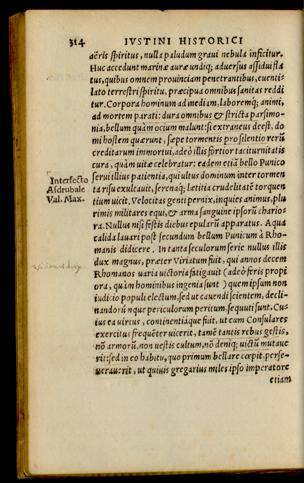 314 IVSTINI HISTORICI
aëris spiritus, nulla paludum graui nebula inficitur.
Huc accedunt marinæ auræ undiq; aduersus assidui fla
tus, quibus omnem prouinciam penetrantibus, euenti-
lato terrestri spiritu, præcipua omnibus sanitas reddi
tur. Corpora hominum ad inediam, laboremq; animi,
ad mortem parati: dura omnibus & stricta parsimo-
nia. bellum quàm ocium malunt: si extraneus deest, do
mi hostem quærunt, sæpe tormentis pro silentio rerũ
creditarum immortui, adeò illis fortior taciturnitatis
cura, quàm uitæ celebratur: eadem etiã bello Punico
Interfecto
Asdrubale
Val. Max.
serui illius patientia, qui ultus dominum inter tormen
ta risu exultauit, serenaq; lætitia crudelitatẽ torquen
tium uicit. Velocitas genti pernix, inquies animus, plu
rimis militares equi, & arma sanguine ipsorũ chario-
ra. Nullus nisi festis diebus epularũ apparatus. Aqua
calida lauari post secundum bellum Punicum à Rho-
manis didicere. In tanta seculorum serie nullus illis
dux magnus, præter Viriatum fuit, qui annos decem
Rhomanos uaria uictoria fatigauit (adeò feris propi
ora, quàm hominibus ingenia sunt) quem ipsum non
iudicio populi electum, sed ut cauendi scientem, decli-
nandorũ nque periculorum peritum, sequuti sunt. Cu-
ius ea uirtus, continentiáque fuit, ut cum Consulares
exercitus frequẽter uicerit, tamẽ tantis rebus gestis,
nõ armorũ, non uestis cultum, nõ deniq; uictũ mutaue
rit: sed in eo habitu, quo primum bellare cœpit, perse-
uerauerit, ut quiuis gregarius miles ipso imperatore
etiam